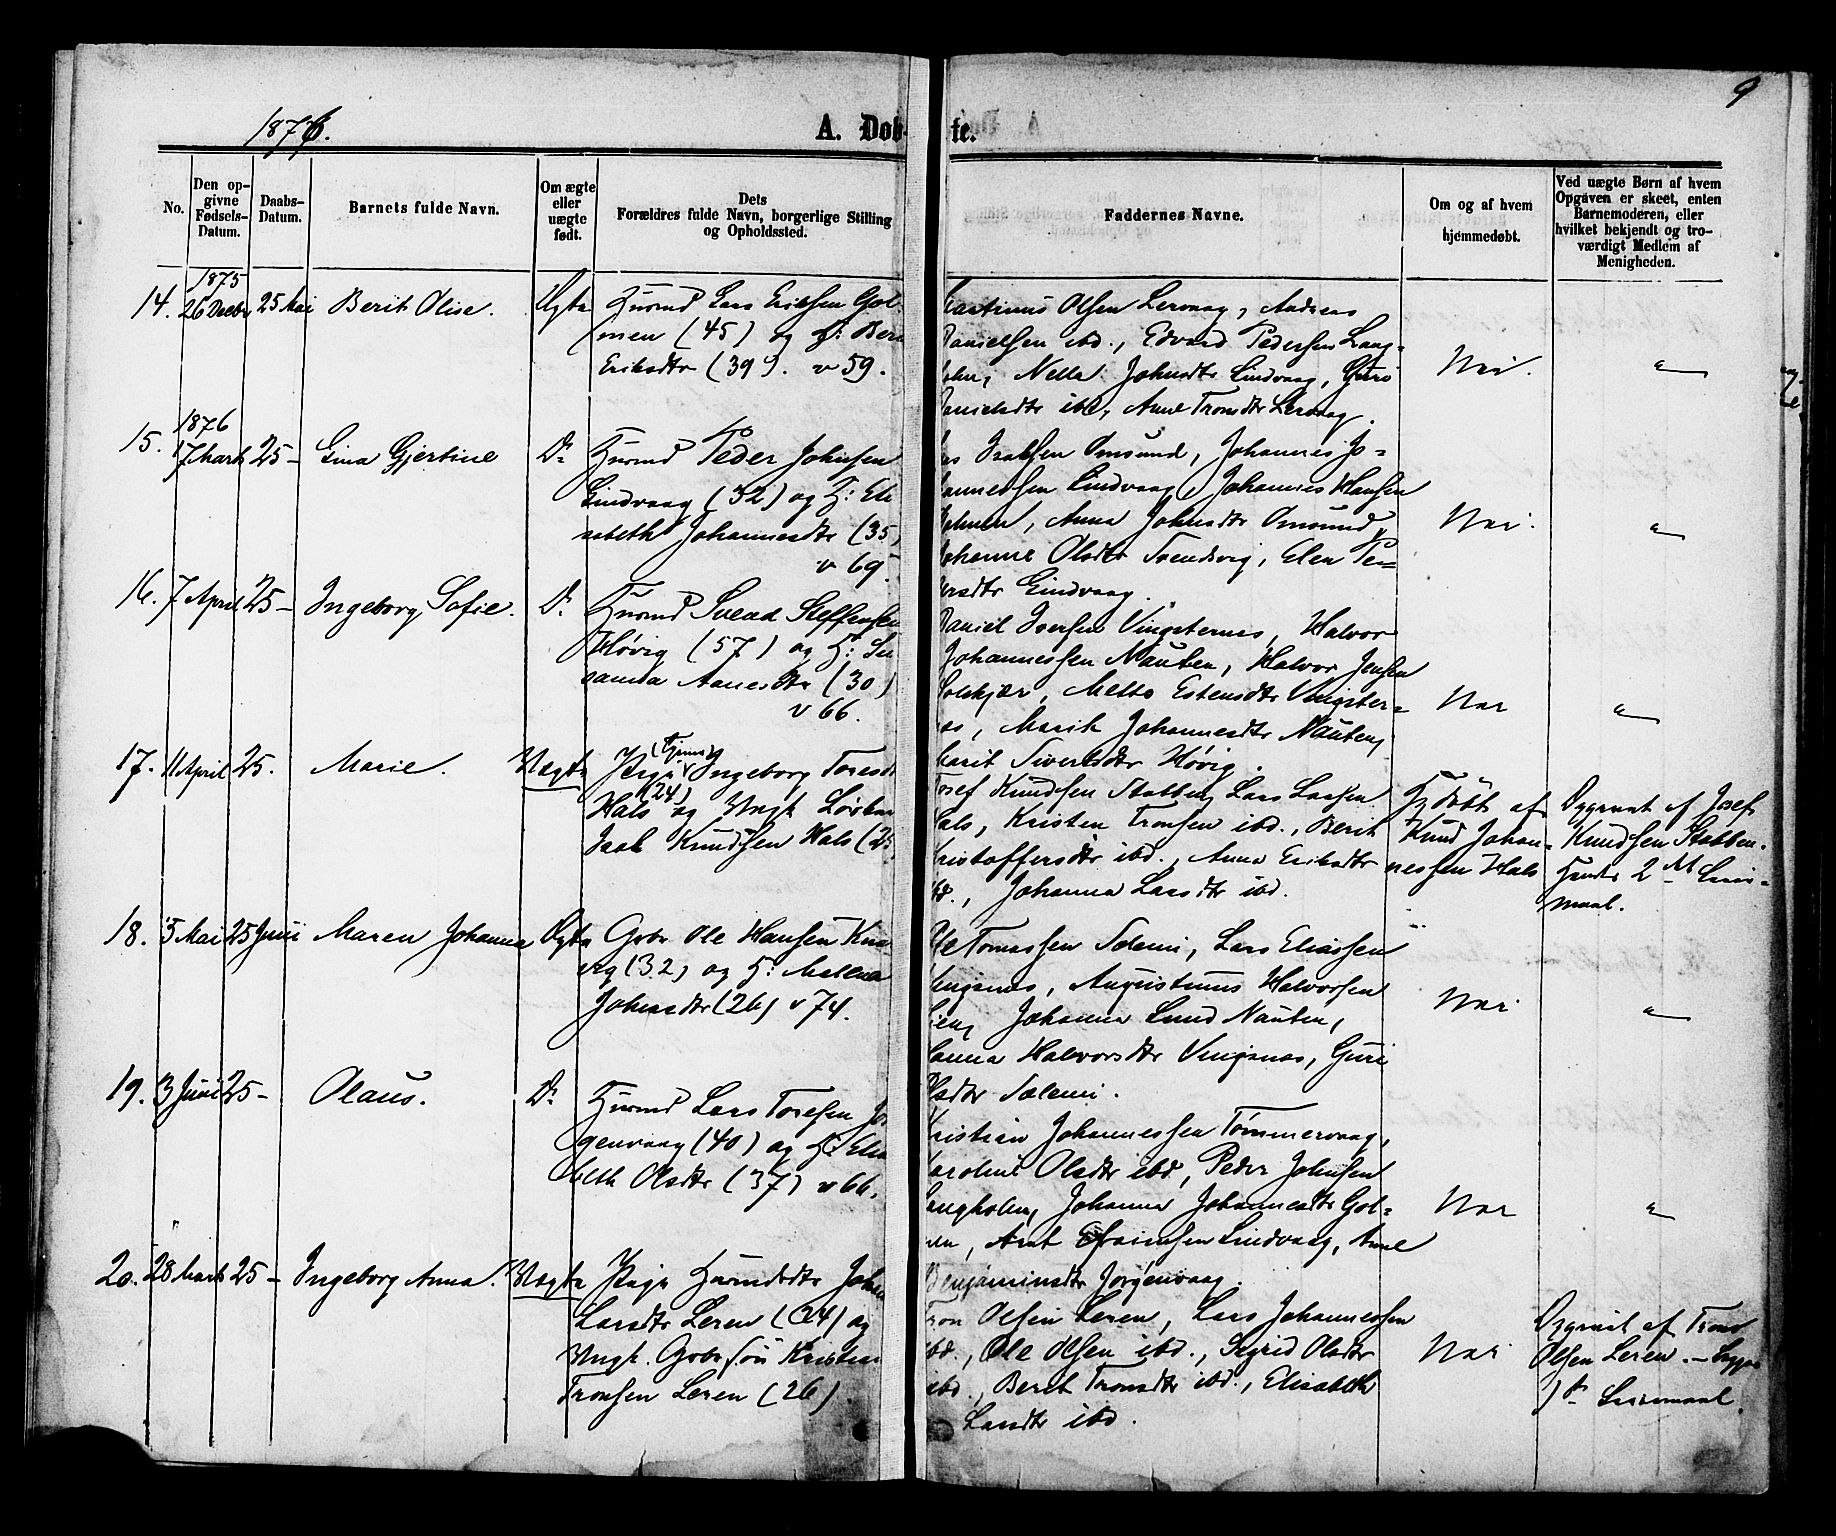 9
1876.
A. Døb-
te.
No.
Den op-
givne
Fødsels-
Datum.
Daabs-
Datum.
Barnets fulde Navn.
Om ægte
eller
uægte
født.
Dets
Forældres fulde Navn, borgerlige Stilling
og Opholdssted.
Faddernes Navne.
Om og af hvem
hjemmedøbt.
Ved uægte Børn af hvem
Opgaven er skeet, enten
Barnemoderen, eller
hvilket bekjendt og tro-
værdigt Medlem af
Menigheden.
1875
14. 26 Decbr 25 Mai Berit Olise. Ægte
Husmd Lars Eriksen Gol-
men (45) og H: Ber
Eriksdtr (39). v 59.
Olsen Lervaag, Andreas
Danielsen ibd., Edvard Pedersen Lang-
Johnsdtr Lindvaag, Guri
Danielsdtr ibd, Anne Tronsdtr Lervaag.
Nei.
"
1876
15. 17 Marts 25 - Gina Gjertine Do
Husmd Peder Johnsen
Lindvaag (32) og H: Eli
sabeth Johannesdtr (35)
v 69.
Omsund, Johannes Jo-
hannessen Lindvaag, Johannes Hansen
Anna Johnsdtr Omsund,
Johanne Olsdtr Svendsvig, Elen Pe-
Lindvaag.
Nei.
"
16. 7 April 25 - Ingeborg Sofie. Do
Husmd Svend Steffensen
Høvig (57) og H: Su
sanna Aanesdtr (30)
v 66.
Daniel Iversen Vingsternes, Halvor
Johannessen Nausten, Halvor Jensen
Solskjær, Mette Estensdtr Vingster-
nes, Marit Johannesdtr Nausten,
Marit Siversdtr Høvig.
Nei
"
17. 11 April 25. Marie. Uægte
(tjener)
Pige Ingeborg Toresd
(24)
Hals og Ungk.
Isak Knudsen Hals (2
Josef Knudsen Stabben, Lars Larsen
Hals, Kristen Tronsen ibd., Berit
Kristoffersdtr ibd., Anna Eriksdtr
ibd., Johanna Larsdtr ibd.
Hjdøbt af
Knud Johan-
nessen Hals
Opgivet af Josef
Knudsen Stabben.
2
maal.
18. 5 Mai 25 Juni Maren Johanna Ægte
Gbr Ole Hansen
(32) og H:
Johnsdtr (26) v 74.
Ole Tomassen Solemi, Lars Eliassen
Vingsnes, Augustinus Halvorsen
Johanna Lund Nausten,
Halvorsdtr Vingsnes, Guri
Olsdtr Solemi.
Nei
"
19. 3 Juni 25 - Olaus. Do
Husmd Lars Toresen Jø
genvaag (40) og H: Elis
beth Olsdtr (37) v 66.
Kristian Johannessen Tømmervaag,
Karoline Olsdtr ibd, Peder Johnsen
Langholm, Johanna Johannesdtr Gol-
men, Arnt Lindvaag, Anne
Benjaminsdtr Jørgenvaag.
Nei
"
20. 28 Marts 25 - Ingeborg Anna. Uægte
Pige Husmdsdtr Johan
Larsdtr Leren (24) og
Ungk. Gbrsøn Kristian
Tronsen Leren (26)
Tron Olsen Leren, Lars Johannessen
ibd., Ole Olsen ibd., Sigrid Olsdtr
ibd., Berit Tronsdtr ibd., Elisabeth
Larsdtr ibd.
Nei
Opgivet af Tron
Olsen Leren. -
1ste Leiermaal.